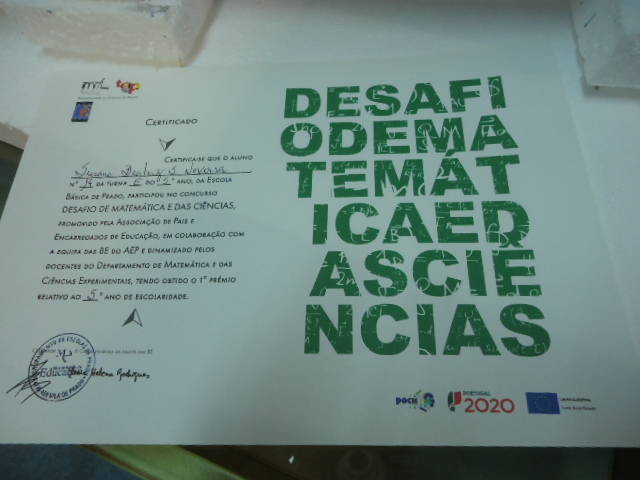 CERTIFICADO
CERTIFICA-SE QUE O ALUNO
Nº 19 DA TURMA E DO 5º ANO, DA ESCOLA
BÁSICA DE PRADO, PARTICIPOU NO CONCURSO
DESAFIO DE MATEMÁTICA E DAS CIÊNCIAS,
PROMOVIDO PELA ASSOCIAÇÃO DE PAIS E
ENCARREGADOS DE EDUCAÇÃO, EM COLABORAÇÃO COM
A EQUIPA DAS BE DO AEP E DINAMIZADO PELOS
DOCENTES DO DEPARTAMENTO DE MATEMÁTICA E DAS
CIÊNCIAS EXPERIMENTAIS, TENDO OBTIDO O 1º PRÉMIO
RELATIVO AO 5º ANO DE ESCOLARIDADE.
Helena Rodrigues
DESAFI
ODEMA
TEMÁT
ICAED
ASCIÊ
NCIAS
POCH
PORTUGAL
2020
UNIÃO EUROPEIA
Fundo Social Europeu